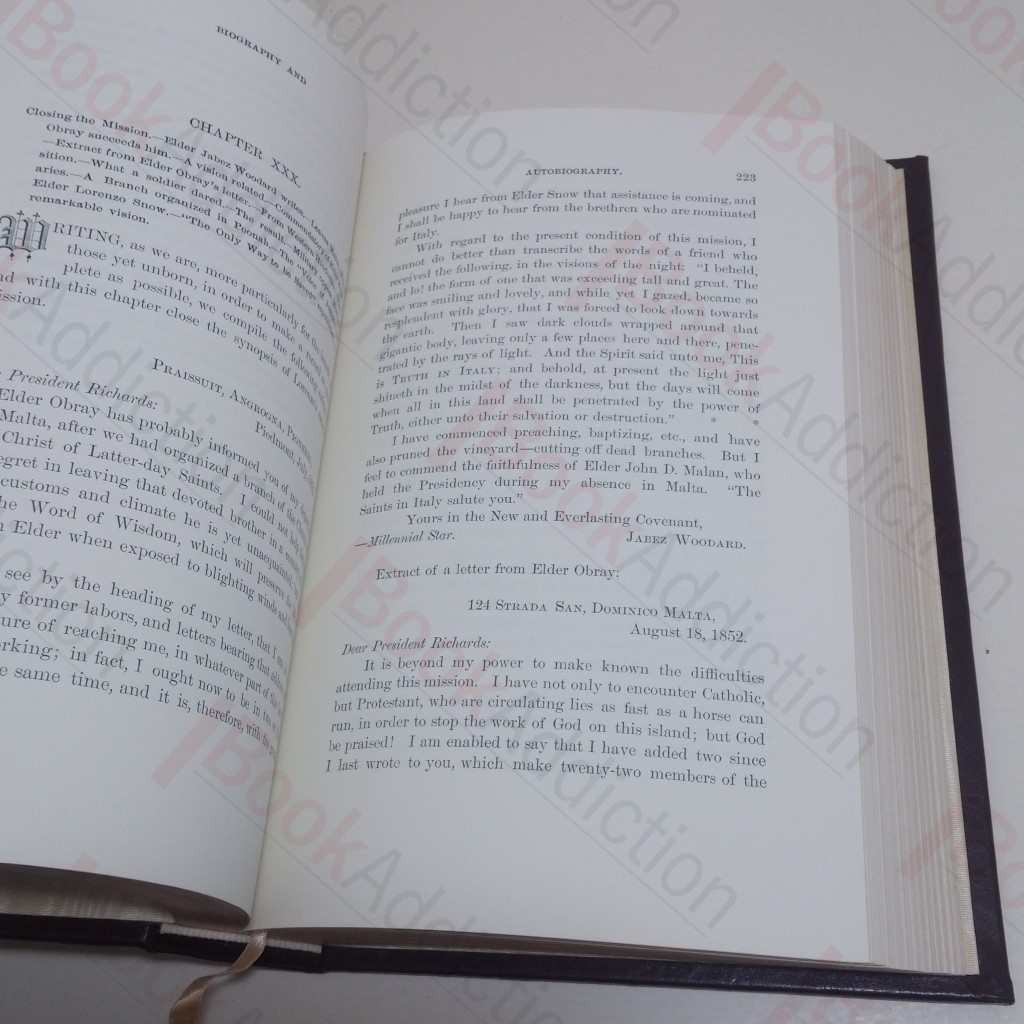 BIOGRAPHY AND
CHAPTER XXX.
Closing the Mission.—Elder Jabez Woodard writes.—
Obray succeeds him.—A vision related.—Commendation of
—Extract from Elder Obray's letter.—From Western
sition.—What a soldier dared.—The result.—Military
aries.—A Branch organized in Poonah.—The "Voice of
Elder Lorenzo Snow.—"The Only Way to be Saved."
remarkable vision.
WRITING, as we are, more particularly for the
those yet unborn, in order to make a record
plete as possible, we compile the following
nd with this chapter close the synopsis of Lorenzo
ission.
PRAISSUIT, ANGROGNA,
Piedmont,
President Richards:
Elder Obray has probably informed you of my
Malta, after we had organized a branch of the
Christ of Latter-day Saints. I could not
egret in leaving that devoted brother in a
customs and climate he is yet unacquainted
he Word of Wisdom, which will preserve
n Elder when exposed to blighting winds and
see by the heading of my letter, that I am
y former labors, and letters bearing that
ure of reaching me, in whatever part of this
rking; in fact, I ought now to be in two or
e same time, and it is, therefore, with the
AUTOBIOGRAPHY. 223
pleasure I hear from Elder Snow that assistance is coming, and
I shall be happy to hear from the brethren who are nominated
for Italy.
With regard to the present condition of this mission, I
cannot do better than transcribe the words of a friend who
received the following, in the visions of the night: "I beheld,
and lo! the form of one that was exceeding tall and great. The
face was smiling and lovely, and while yet I gazed, became so
resplendent with glory, that I was forced to look down towards
the earth. Then I saw dark clouds wrapped around that
gigantic body, leaving only a few places here and there, pene-
trated by the rays of light. And the Spirit said unto me, This
is TRUTH IN ITALY; and behold, at present the light just
shineth in the midst of the darkness, but the days will come
when all in this land shall be penetrated by the power of
Truth, either unto their salvation or destruction." * *
I have commenced preaching, baptizing, etc., and have
also pruned the vineyard—cutting off dead branches. But I
feel to commend the faithfulness of Elder John D. Malan, who
held the Presidency during my absence in Malta. "The
Saints in Italy salute you."
Yours in the New and Everlasting Covenant,
—Millennial Star. JABEZ WOODARD.
Extract of a letter from Elder Obray:
124 STRADA SAN, DOMINICO MALTA,
August 18, 1852.
Dear President Richards:
It is beyond my power to make known the difficulties
attending this mission. I have not only to encounter Catholic,
but Protestant, who are circulating lies as fast as a horse can
run, in order to stop the work of God on this island; but God
be praised! I am enabled to say that I have added two since
I last wrote to you, which make twenty-two members of the
BookAddiction